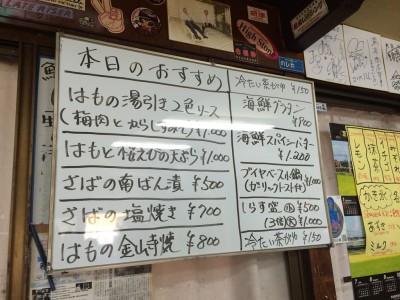 本日のおすすめ
はもの湯引き2色ソース
(梅肉とからしすみそ)¥1,000
はもと桜えびの天ぷら¥1,000
さばの南ばん漬 ¥500
さばの塩焼き ¥700
はもの金山寺焼 ¥800
冷たい茶がゆ ¥150
海鮮グラタン
¥800
海鮮スパイシーバター
¥1,200
ブイヤベース小鍋
(ガーリックトースト付) ¥1,000
しらす窓 小 ¥500
(3倍)大 ¥1,000
冷たい茶がゆ ¥150
High Sign
レモン
イチゴ
あずき
ミルク